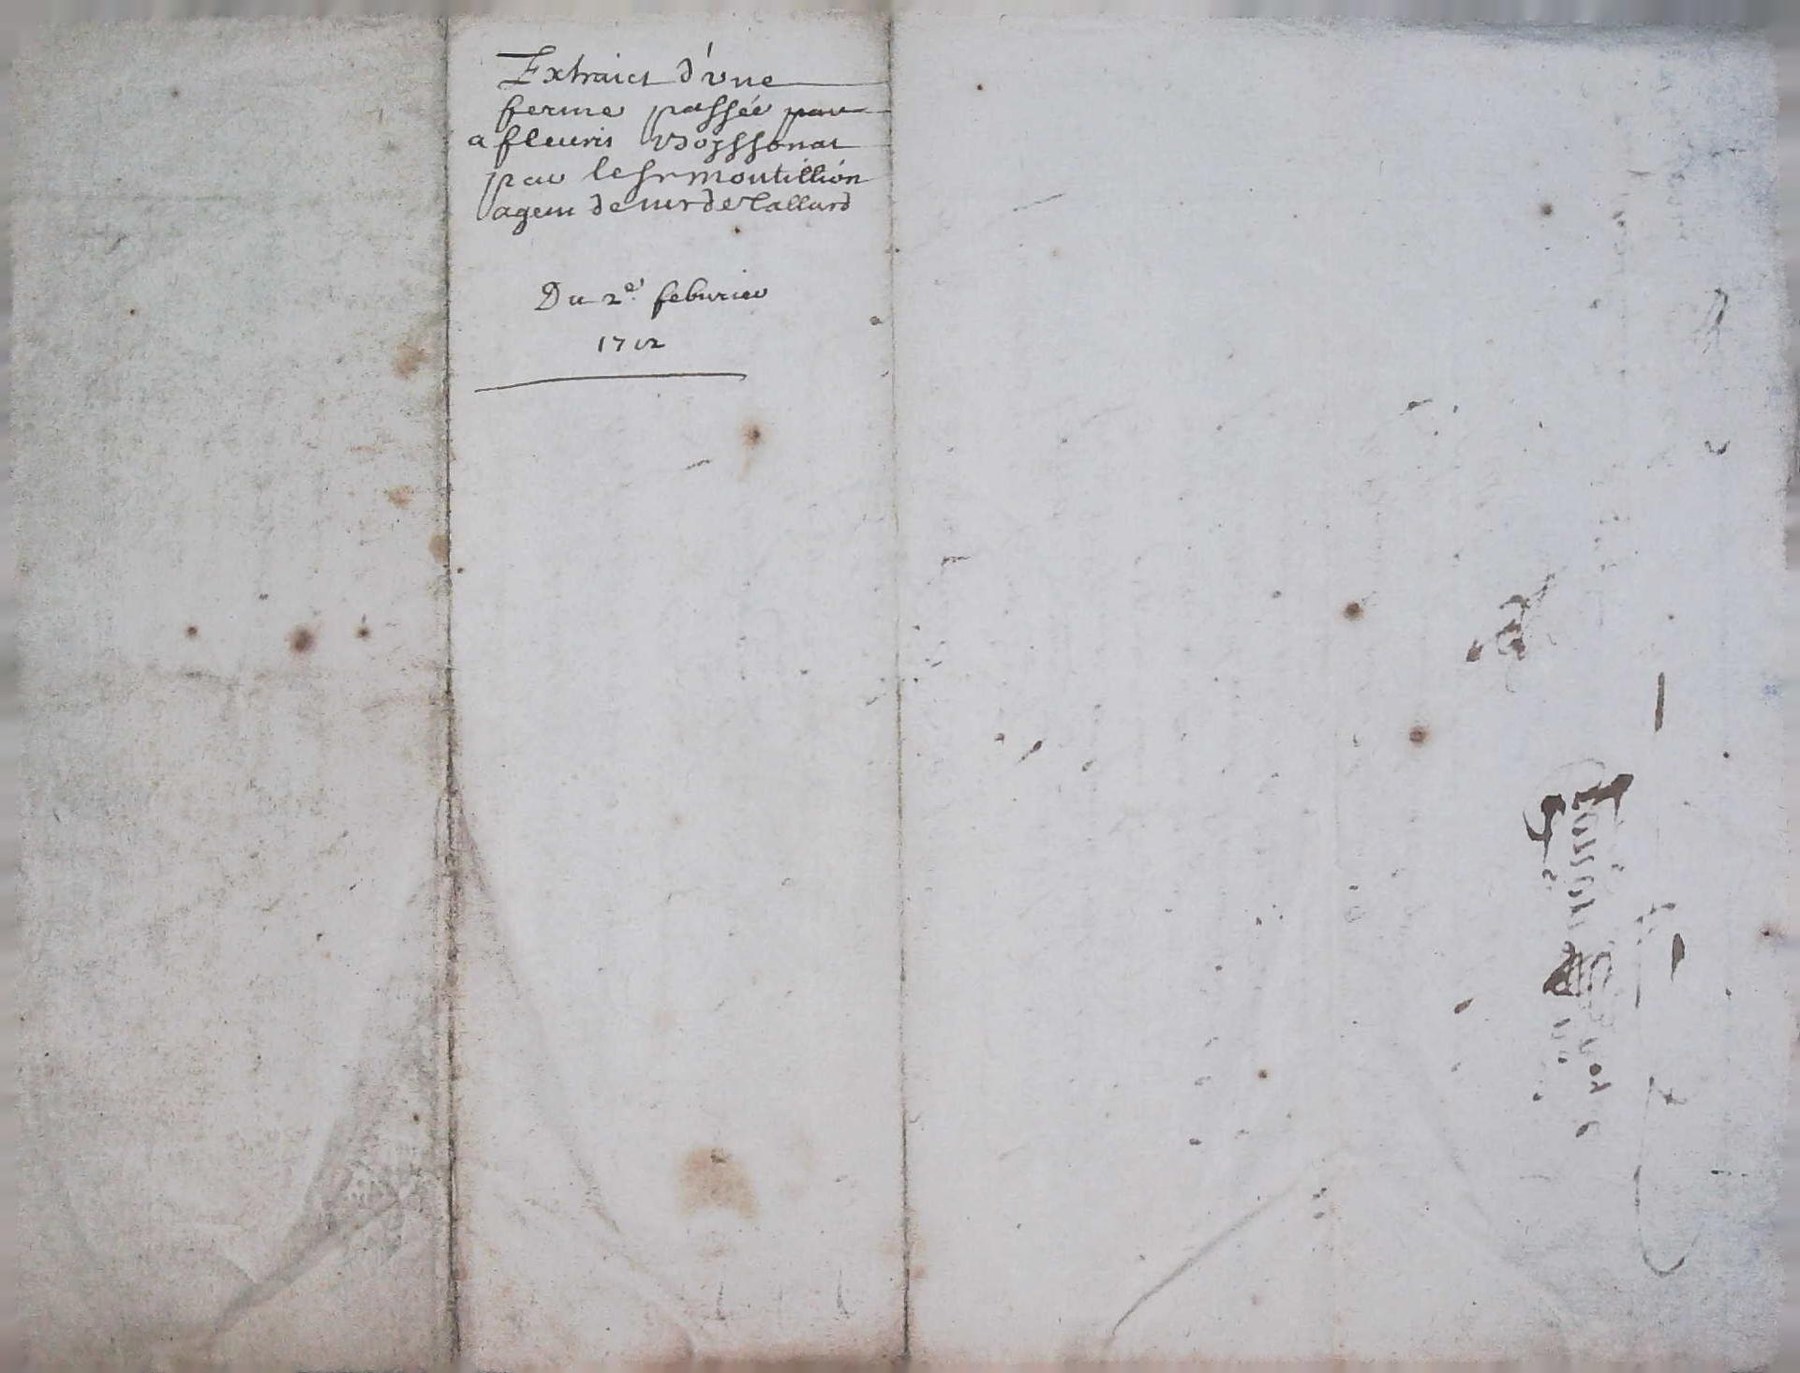 Extraict d'une
ferme passée par
a fleuris Boyssonat
par le sr moutillion
agent de mr de Tallard
Du 2e. feburier
1712